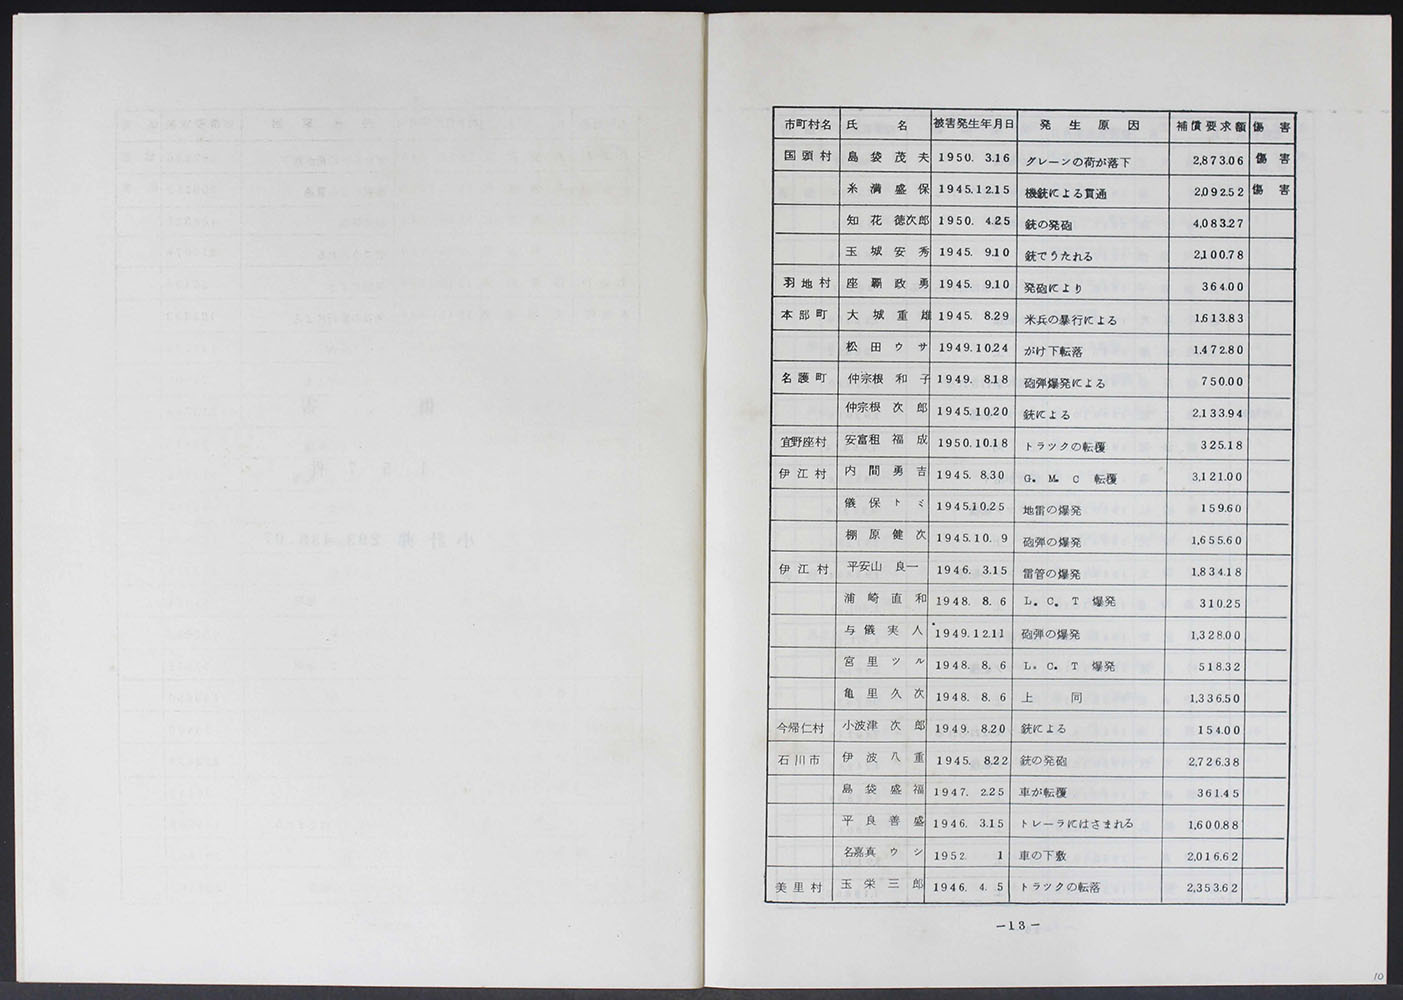 市町村名 氏 名 被害発生年月日 発生原因 補償要求額 傷害
国頭村 島袋茂夫 1950. 3.16 クレーンの荷が落下 2,873.06 傷害
糸満盛保 1945.12.15 機銃による貫通 2,092.52 傷害
知花徳次郎 1950. 4.25 銃の発砲 4,083.27
玉城安秀 1945. 9.10 銃でうたれる 2,100.78
羽地村 座覇政勇 1945. 9.10 発砲により 364.00
本部町 大城重雄 1945. 8.29 米兵の暴行による 1,613.83
松田ウサ 1949.10.24 がけ下転落 1,472.80
名護町 仲宗根和子 1949. 8.18 砲弾爆発による 750.00
仲宗根次郎 1945.10.20 銃による 2,133.94
宜野座村 安富租福成 1950.10.18 トラックの転覆 325.18
伊江村 内間勇吉 1945. 8.30 G. M. C 転覆 3,121.00
儀保トミ 1945.10.25 地雷の爆発 159.60
棚原健次 1945.10. 9 砲弾の爆発 1,655.60
伊江村 平安山良一 1946. 3.15 雷管の爆発 1,834.18
浦崎直和 1948. 8. 6 L. C. T 爆発 310.25
与儀実人 1949.12.11 砲弾の爆発 1,328.00
宮里ツル 1948. 8. 6 L. C. T 爆発 518.32
亀里久次 1948. 8. 6 上同 1,336.50
今帰仁村 小波津次郎 1949. 8.20 銃による 154.00
石川市 伊波八重 1945. 8.22 銃の発砲 2,726.38
島袋盛福 1947. 2.25 車が転覆 361.45
平良善盛 1946. 3.15 トレーラにはさまれる 1,600.88
名嘉真ウシ 1952. 1 車の下敷 2,016.62
美里村 玉栄三郎 1946. 4. 5 トラックの転落 2,353.62
－13－
10